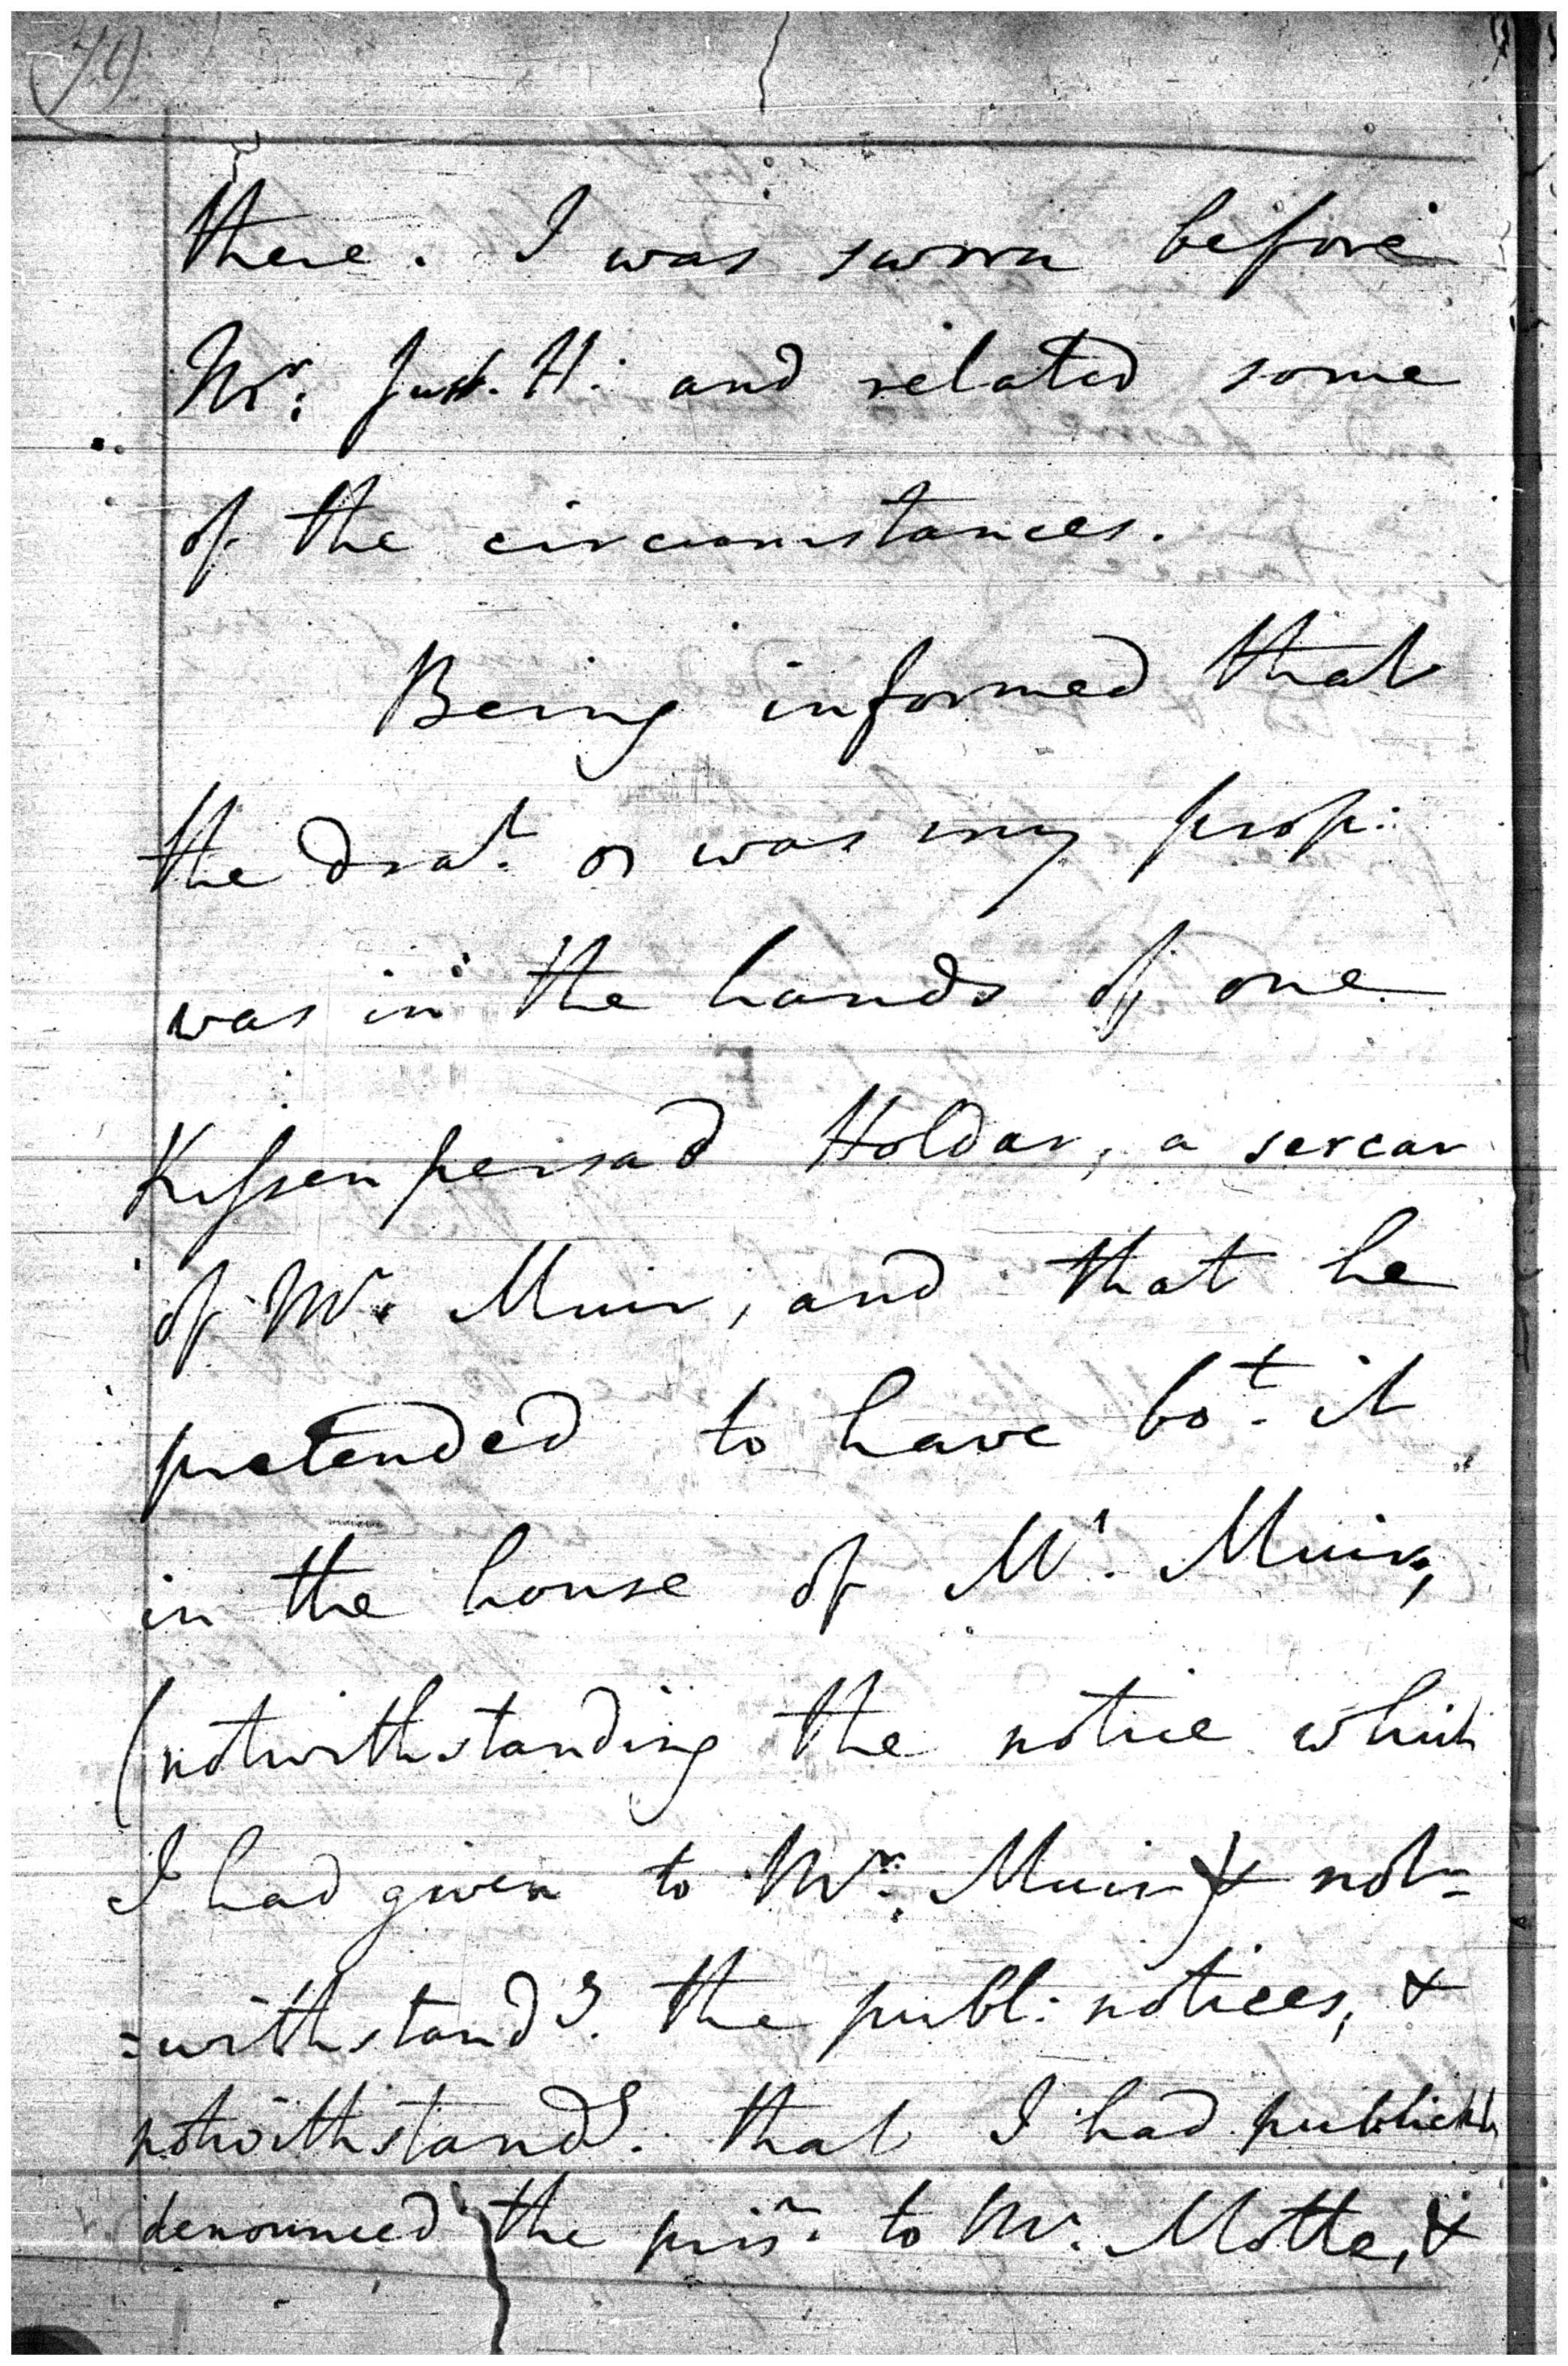 there. I was sworn before
Mr: Just. H. and related some
of the circumstances.
Being informed that
the was my prop:
was in the hands of one
Kissenpersad Holdar, a sercar
of Mr. Muir, and that he
pretended to have bot. it
in the house of Mr. Muir,
(notwithstanding the notice which
I had given to Mr. Muir) & not=
=withstandg. the publ: notices, &
notwithstandg. that I had publickly
denounced the prisr. to Mr. Motte, &